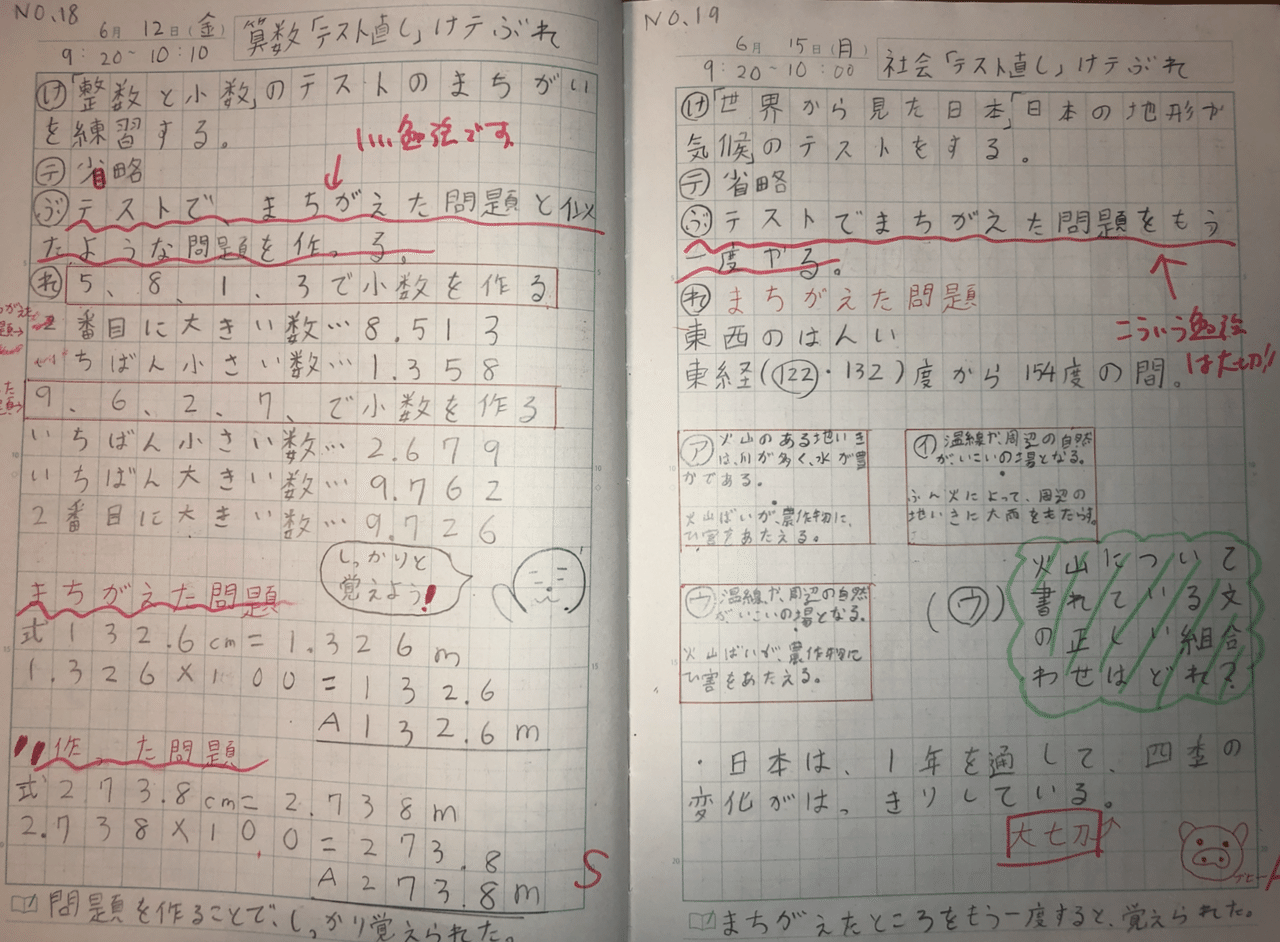 NO.18
6月 12日(金)
9:20~10:10
算数「テスト直し」けテぶれ
け「整数と小数」のテストのまちがい
を練習する。
いい勉強です
テ 省略
ぶ テストで、まちがえた問題と似
たような問題を作っる。
れ 5、8、1、3で小数を作る
2番目に大きい数…8.513
いちばん小さい数…1.358
9、6、2、7、で小数を作る
いちばん小さい数…2.679
いちばん大きい数…9.762
2番目に大きい数…9.726
しっかりと
覚えよう!
まちがえた問題
式132.6cm=1.326m
1.326×100=132.6
A132.6m
作った問題
式273.8cm=2.738m
2.738×100=273.8
A273.8m
S
問題を作ることで、しっかり覚えられた。
NO.19
6月 15日(月)
9:20~10:00
社会「テスト直し」けテぶれ
け「世界から見た日本」「日本の地形や
気候」のテストをする。
テ 省略
ぶ テストでまちがえた問題をもう
一度やる。
れ まちがえた問題
こういう勉強
は大切!!
東西のはんい
東経(122・132)度から154度の間。
ア 火山のある地いき
は、川が多く、水が豊
かである。
・
火山ばいが、農作物に、
ひ害をあたえる。
イ 温線が、周辺の自然
がいこいの場となる。
・
ふん火によって、周辺の
地いきに大雨をもたらす。
ウ 温線が、周辺の自然
がいこいの場となる。
・
火山ばいが、農作物に
ひ害をあたえる。
(ウ)
火山について
書れている文
の正しい組合
わせはどれ?
・日本は、1年を通して、四季の
変化がはっきりしている。
大切
まちがえたところをもう一度すると、覚えられた。